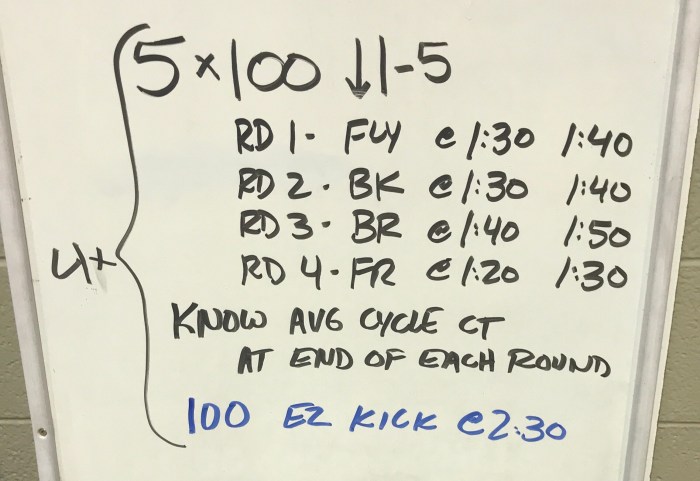 5 x 100 ↓ 1-5
RD 1 - FLY @ 1:30 1:40
RD 2 - BK @ 1:30 1:40
RD 3 - BR @ 1:40 1:50
4x
RD 4 - FR @ 1:20 1:30
KNOW AVG CYCLE CT
AT END OF EACH ROUND
100 EZ KICK @ 2:30